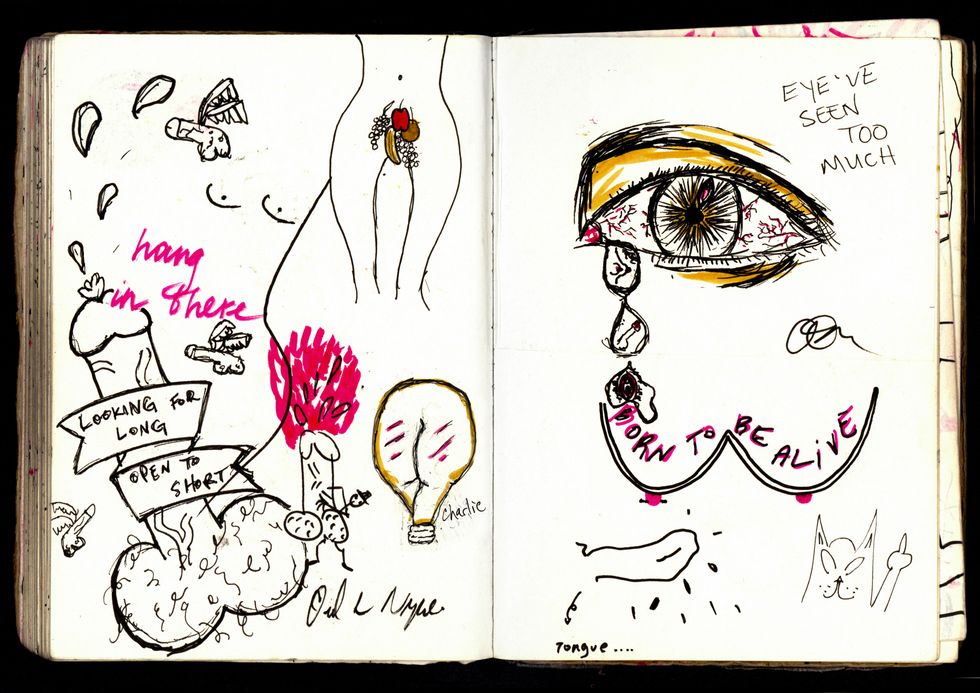 hang
in there
LOOKING FOR
LONG
OPEN TO
SHORT
Charlie
EYE'VE
SEEN
TOO
MUCH
BORN TO BE ALIVE
Tongue ....